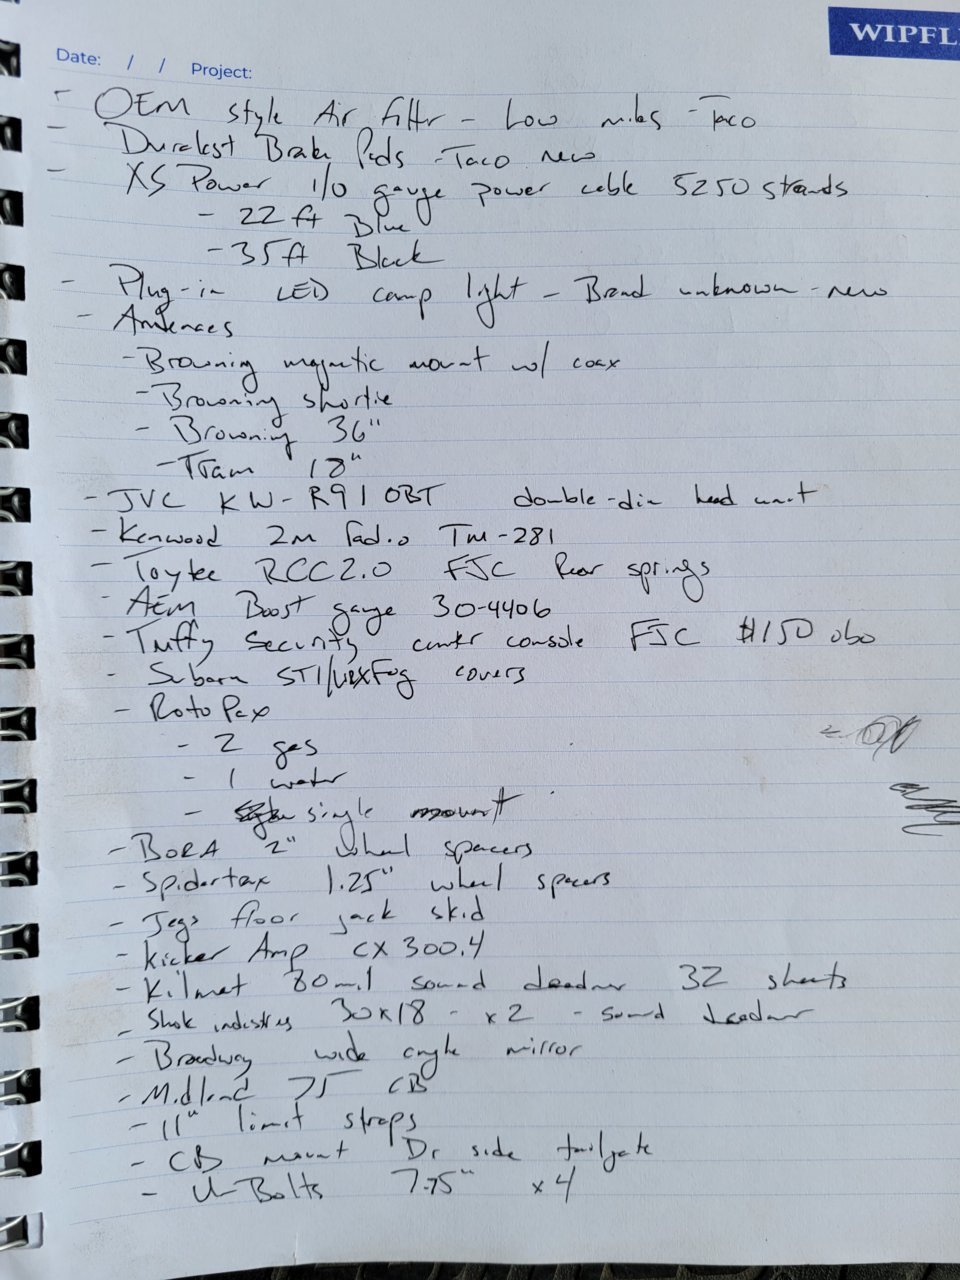 WIPFLI
Date: / / Project:
- OEM style Air filtr - Low miles - Taco
- Duralast Brake Pads - Taco new
- XS Power 1/0 gauge power cable 5250 strands
- 22 ft Blue
- 35 ft Black
- Plug-in LED camp light - Brand unknown - new
- Antennaes
- Browning magnetic mount w/ coax
- Browning shortie
- Browning 36"
- Tram 18"
- JVC KW-R910BT double-din head unit
- Kenwood 2m radio TM-281
- Toytec RCC2.0 FJC Rear springs
- AEM Boost gauge 30-4406
- Tuffy Security center console FJC $150 obo
- Subaru STI/WRX Fog covers
- RotoPax
- 2 gas
- 1 water
- single mount
- BORA 2" wheel spacers
- Spidertrax 1.25" wheel spacers
- Jegs floor jack skid
- Kicker Amp CX300.4
- Kilmat 80mil sound deadner 32 sheets
- Shok industries 30x18 - x2 - sound deadner
- Broadway wide angle mirror
- Midland 75 CB
- 11" limit straps
- CB mount Dr side tailgate
- U-Bolts 7.75" x4